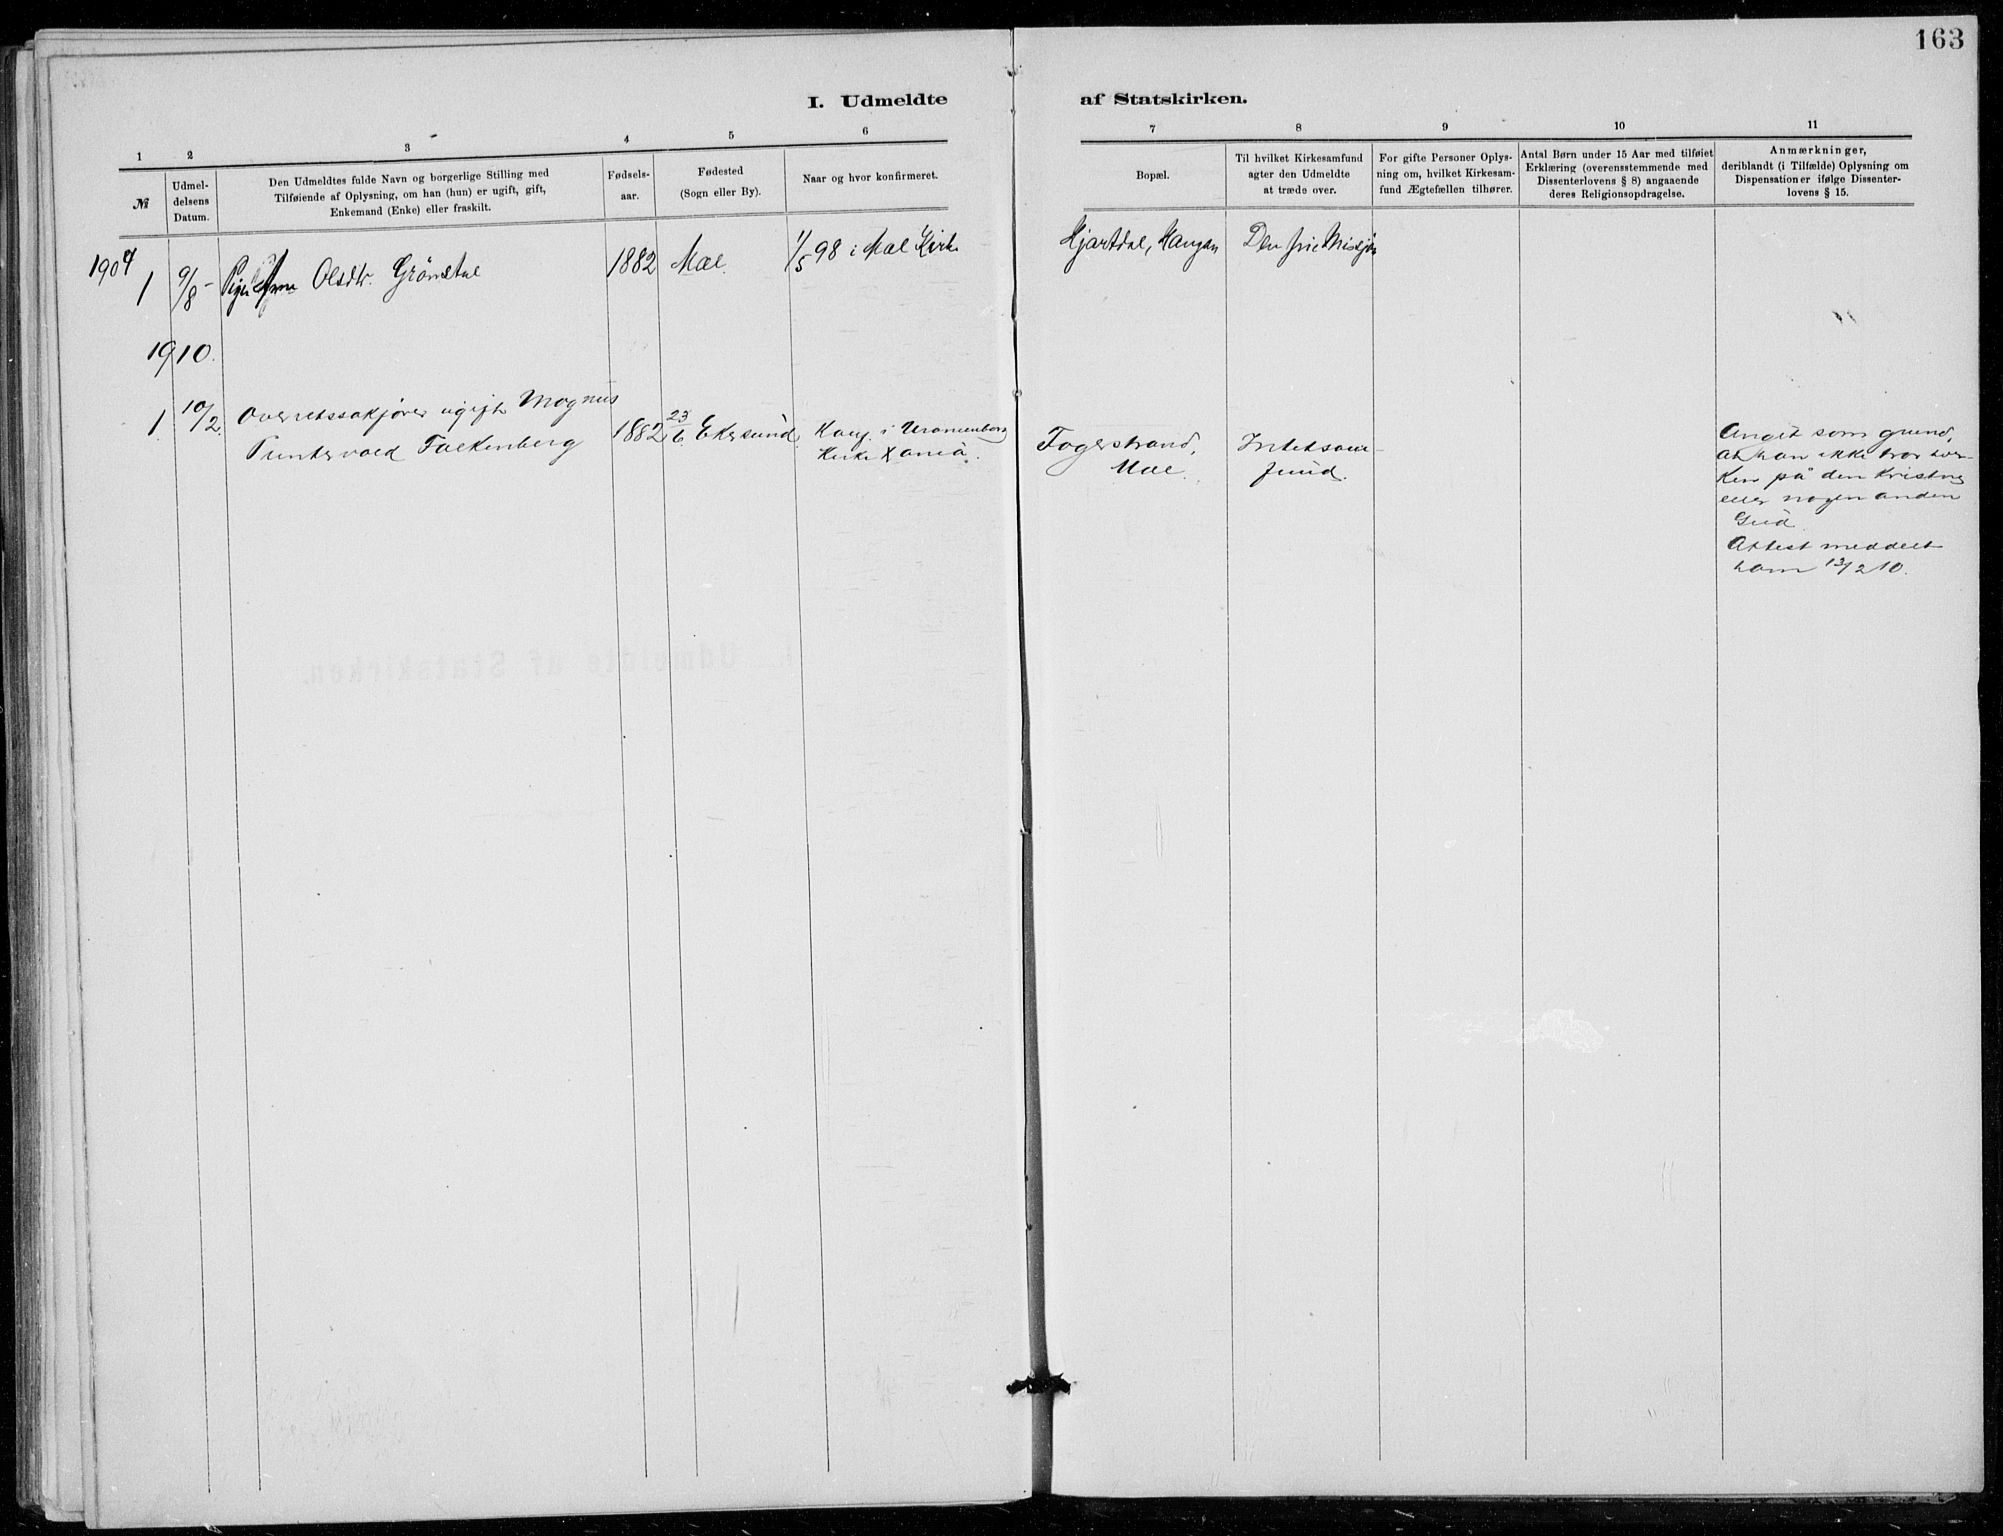 163
I. Udmeldte af Statskirken.
1 2 3 4 5 6 7 8 9 10 11
№
Udmel-
delsens
Datum.
Den Udmeldtes fulde Navn og borgerlige Stilling med
Tilføiende af Oplysning, om han (hun) er ugift, gift,
Enkemand (Enke) eller fraskilt.
Fødsels-
aar.
Fødested
(Sogn eller By).
Naar og hvor konfirmeret.
Bopæl.
Til hvilket Kirkesamfund
agter den Udmeldte
at træde over.
For gifte Personer Oplys-
ning om, hvilket Kirkesam-
fund Ægtefællen tilhører.
Antal Børn under 15 Aar med tilføiet
Erklæring (overensstemmende med
Dissenterlovens § 8) angaaende
deres Religionsopdragelse.
Anmærkninger,
deriblandt (i Tilfælde) Oplysning om
Dispensationer ifølge Dissenter-
lovens § 15.
1904
1 9/8 Olsdtr. Grönstul 1882 Mæl. 1/5 98 i Mæl Kirke Hjartdal, Den frie Misjon
1910.
1 10/2. Overretssakfører ugift Magnus
Puntervold Falkenberg 1882 23/6 Ekersund
Konf. i Uranienborg
Kirke Xania.
Fagerstrand,
Mæl.
Intet sam-
fund.
Angit som grund,
at han ikke tror hver-
ken på den kristne
eller nogen anden
Gud.
Attest meddelt
ham 13/2 10.